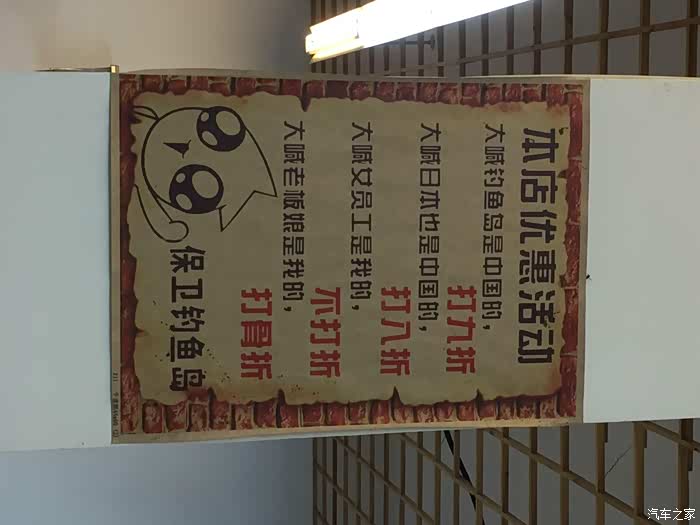 本店优惠活动
大喊钓鱼岛是中国的，
打九折
大喊日本也是中国的，
打八折
大喊女员工是我的，
不打折
大喊老板娘是我的，
打骨折
保卫钓鱼岛
汽车之家